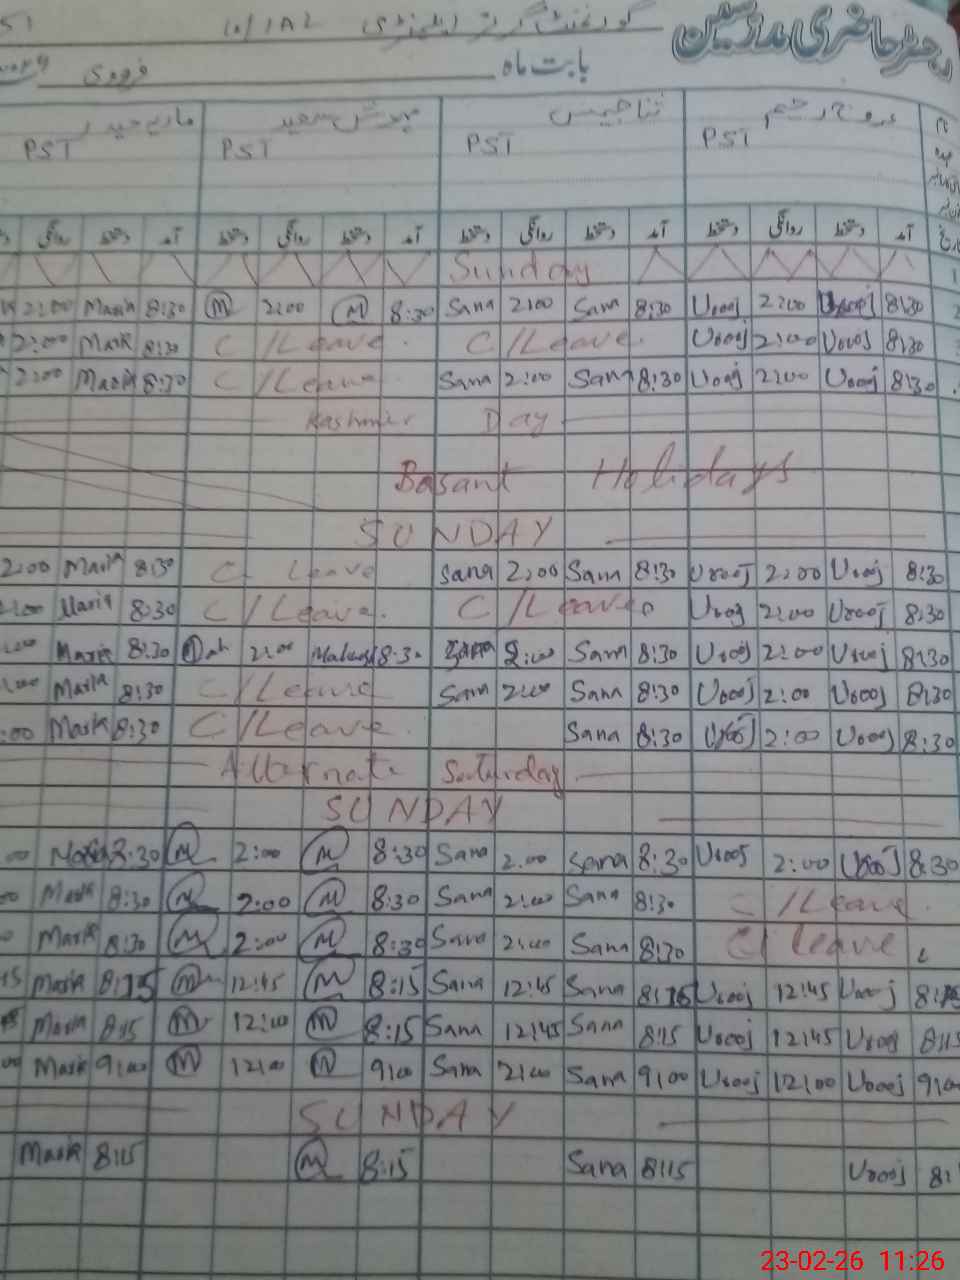 رجسٹر حاضری مدرسین گورنمنٹ گرلز ایلیمنٹری 10/1AL
بابت ماہ فروری
عروج رحیم ثنا جیمس سعید ماریہ حیدر
PST PST PST PST
آمد دستخط روانگی دستخط آمد دستخط روانگی دستخط آمد دستخط روانگی دستخط آمد دستخط روانگی
Sunday
2:00 Maria 8:30 M 2:00 M 8:30 Sana 2:00 Sana 8:30 Urooj 2:00 Urooj 8:30
2:00 Maria 8:30 C/Leave. C/Leave. Urooj 2:00 Urooj 8:30
2:00 Maria 8:30 C/Leave Sana 2:00 Sana 8:30 Urooj 2:00 Urooj 8:30
Kashmir Day
Basant Holidays
SUNDAY
2:00 Maria 8:30 C Leave Sana 2:00 Sana 8:30 Urooj 2:00 Urooj 8:30
:00 Maria 8:30 C/Leave. C/Leave Urooj 2:00 Urooj 8:30
:00 Maria 8:30 2:00 8:30 Sana 2:00 Sana 8:30 Urooj 2:00 Urooj 8:30
:00 Maria 8:30 C/Leave Sana 2:00 Sana 8:30 Urooj 2:00 Urooj 8:30
:00 Maria 8:30 C/Leave. Sana 8:30 Urooj 2:00 Urooj 8:30
Alternate Saturday
SUNDAY
00 Maria 8:30 M 2:00 M 8:30 Sana 2:00 Sana 8:30 Urooj 2:00 Urooj 8:30
Maria 8:30 M 2:00 M 8:30 Sana 2:00 Sana 8:30 C/Leave.
Maria 8:30 M 2:00 M 8:30 Sana 2:00 Sana 8:30 C/Leave
15 Maria 8:15 M 12:45 M 8:15 Sana 12:45 Sana 8:15 Urooj 12:45 Urooj 8:15
Maria 8:15 M 12:00 M 8:15 Sana 12:45 Sana 8:15 Urooj 12:45 Urooj 8:15
00 Maria 9:00 M 12:00 M 9:00 Sana 2:00 Sana 9:00 Urooj 12:00 Urooj 9:00
SUNDAY
Maria 8:15 M 8:15 Sana 8:15 Urooj 8:1
23-02-26 11:26